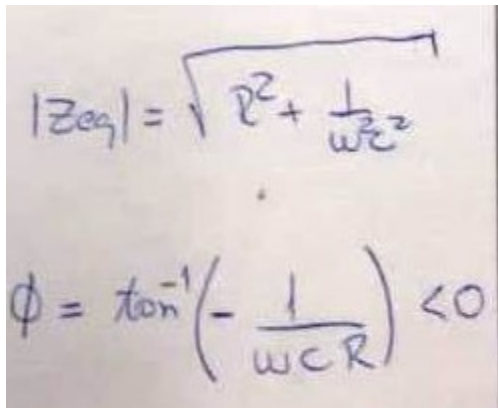 |Zeq| = √(R² + 1/(ω²C²))
ϕ = tan⁻¹(- 1/(ωCR)) < 0